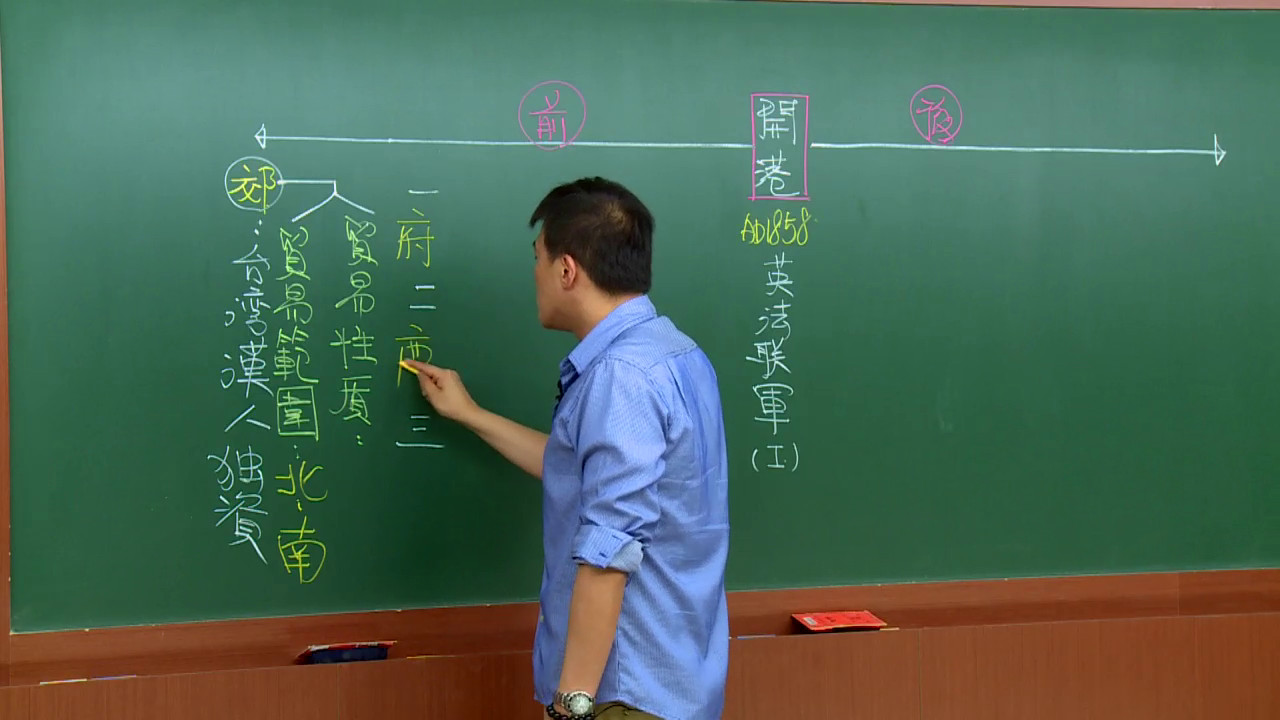 前
開港
後
郊：台湾漢人独資
貿易範圍：北、南
貿易性質：
一府二 三
AD1858
英法联軍
(I)